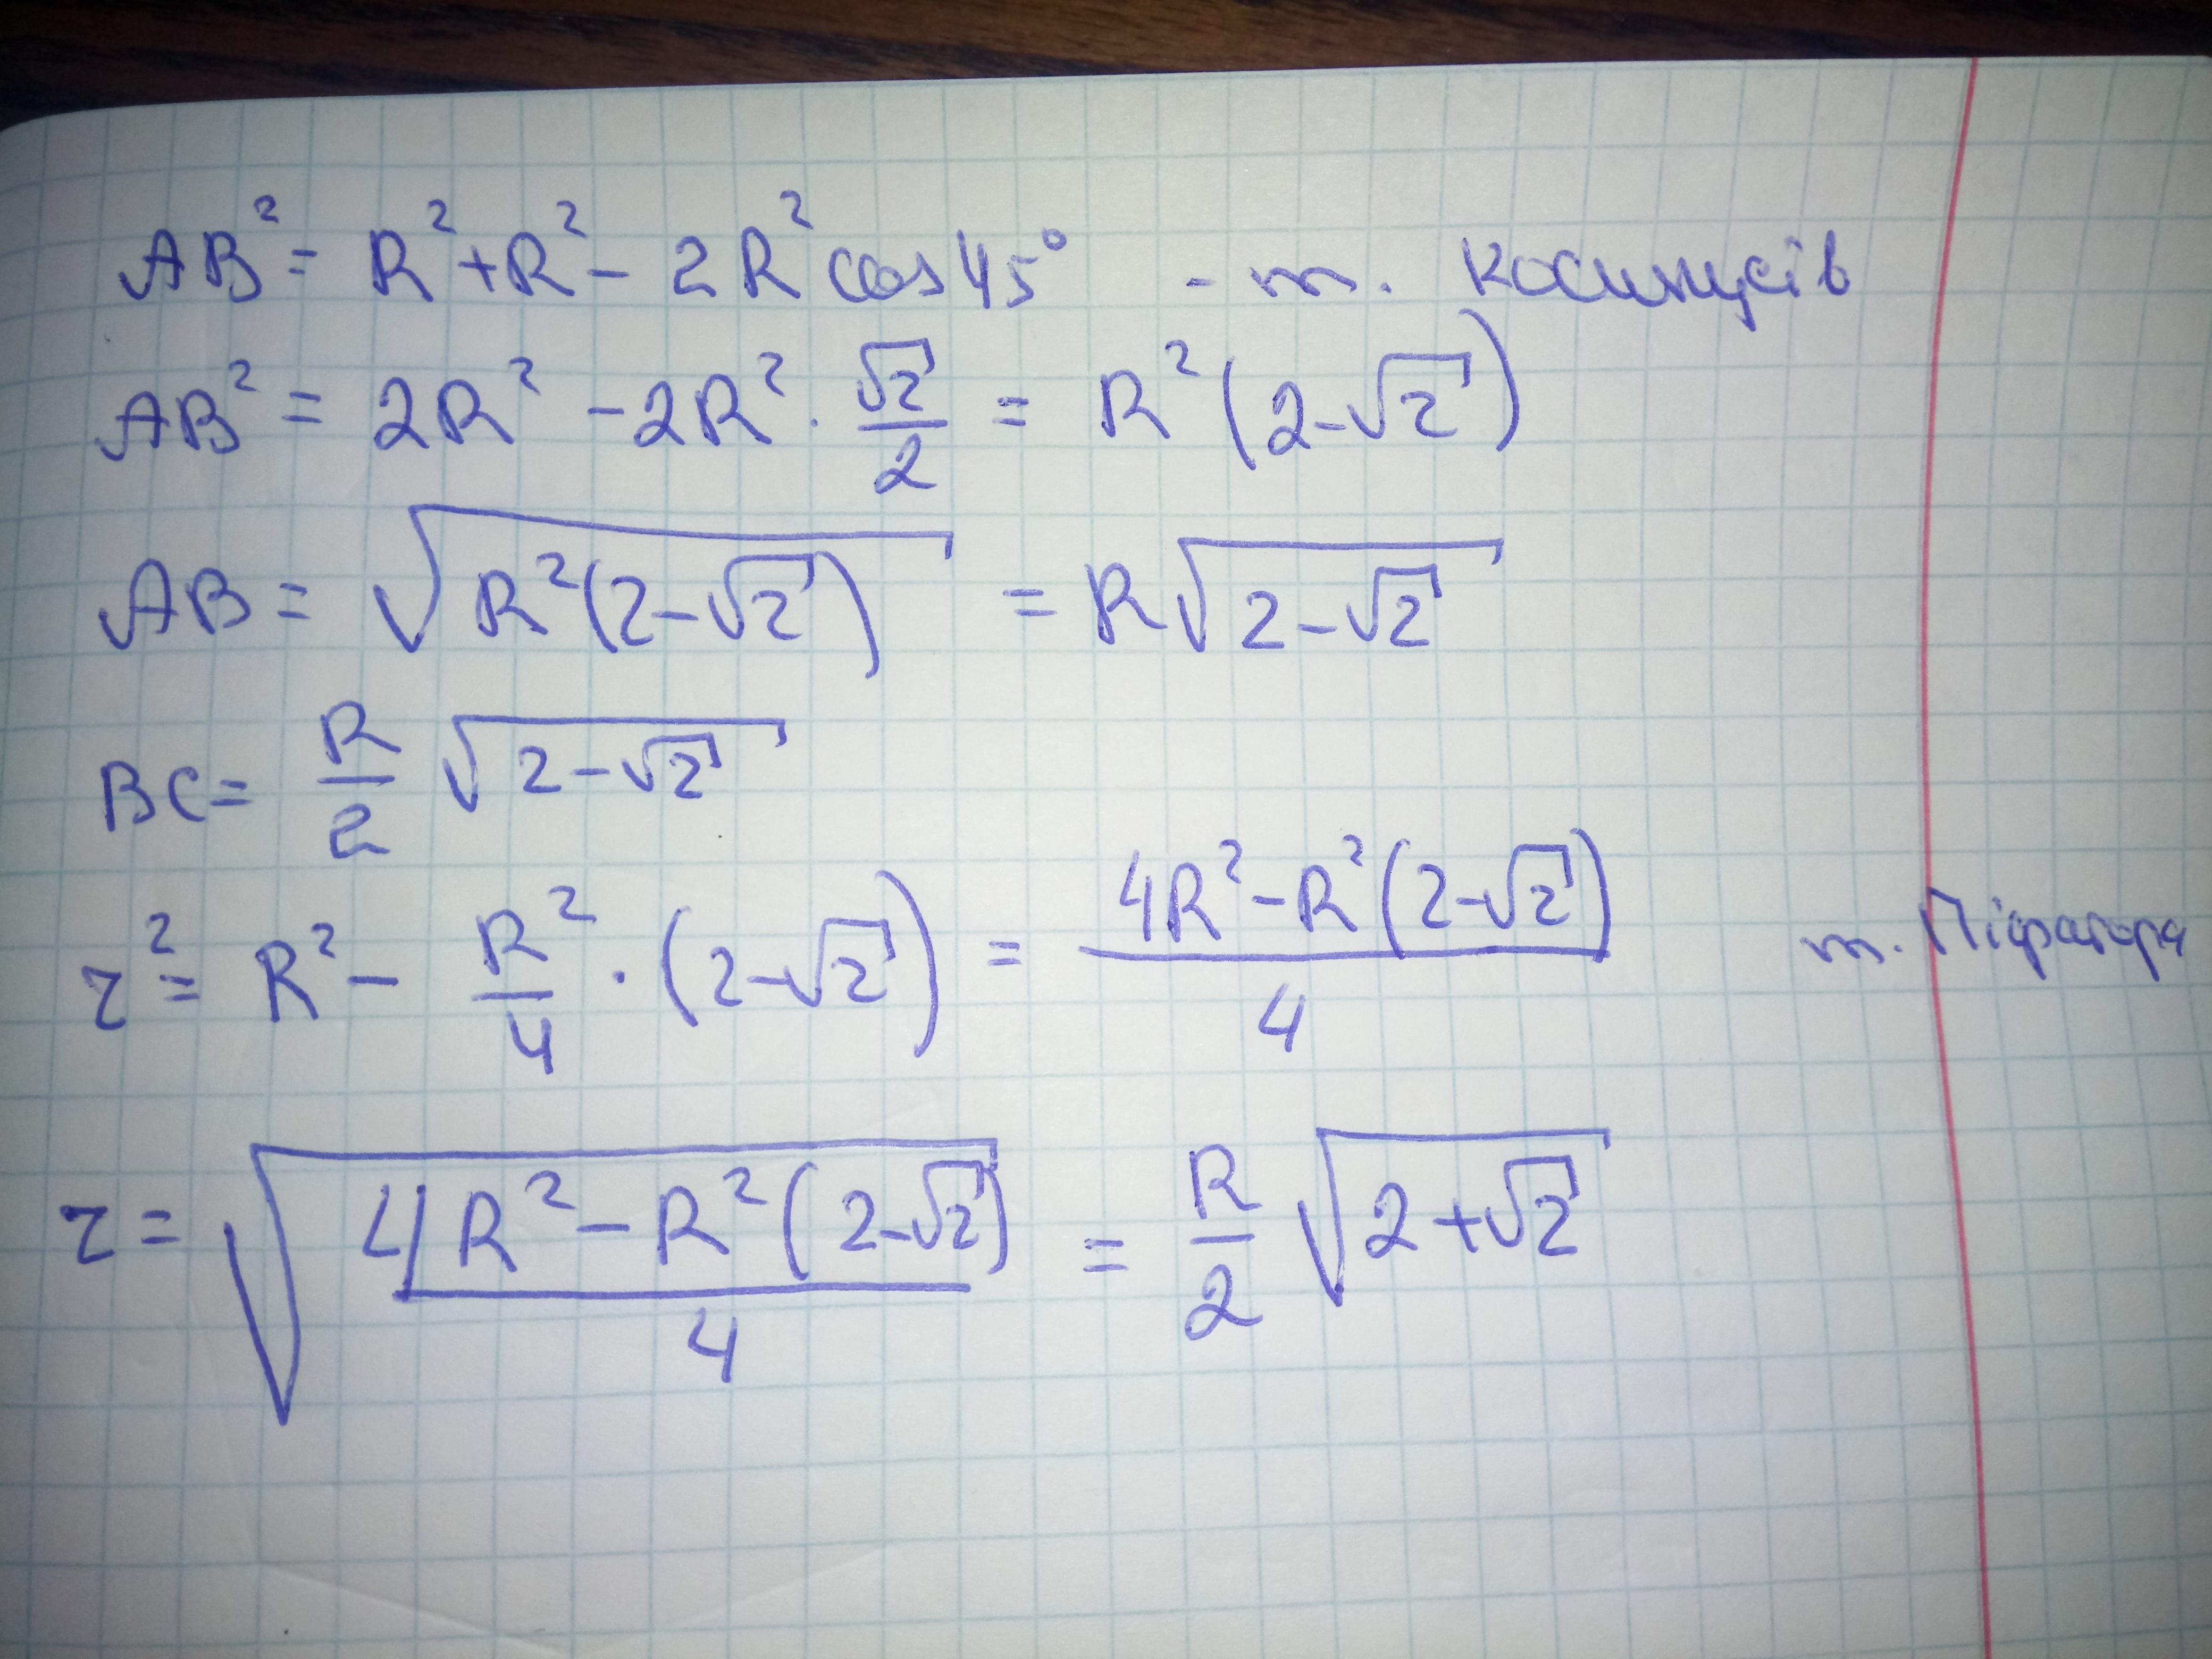 AB² = R² + R² - 2R² cos 45° - т. косинусів
AB² = 2R² - 2R² · √2/2 = R²(2-√2)
AB = √(R²(2-√2)) = R√(2-√2)
BC = R/2 √(2-√2)
r² = R² - R²/4 · (2-√2) = (4R² - R²(2-√2))/4 т. Піфагора
r = √((4R² - R²(2-√2))/4) = R/2 √(2+√2)